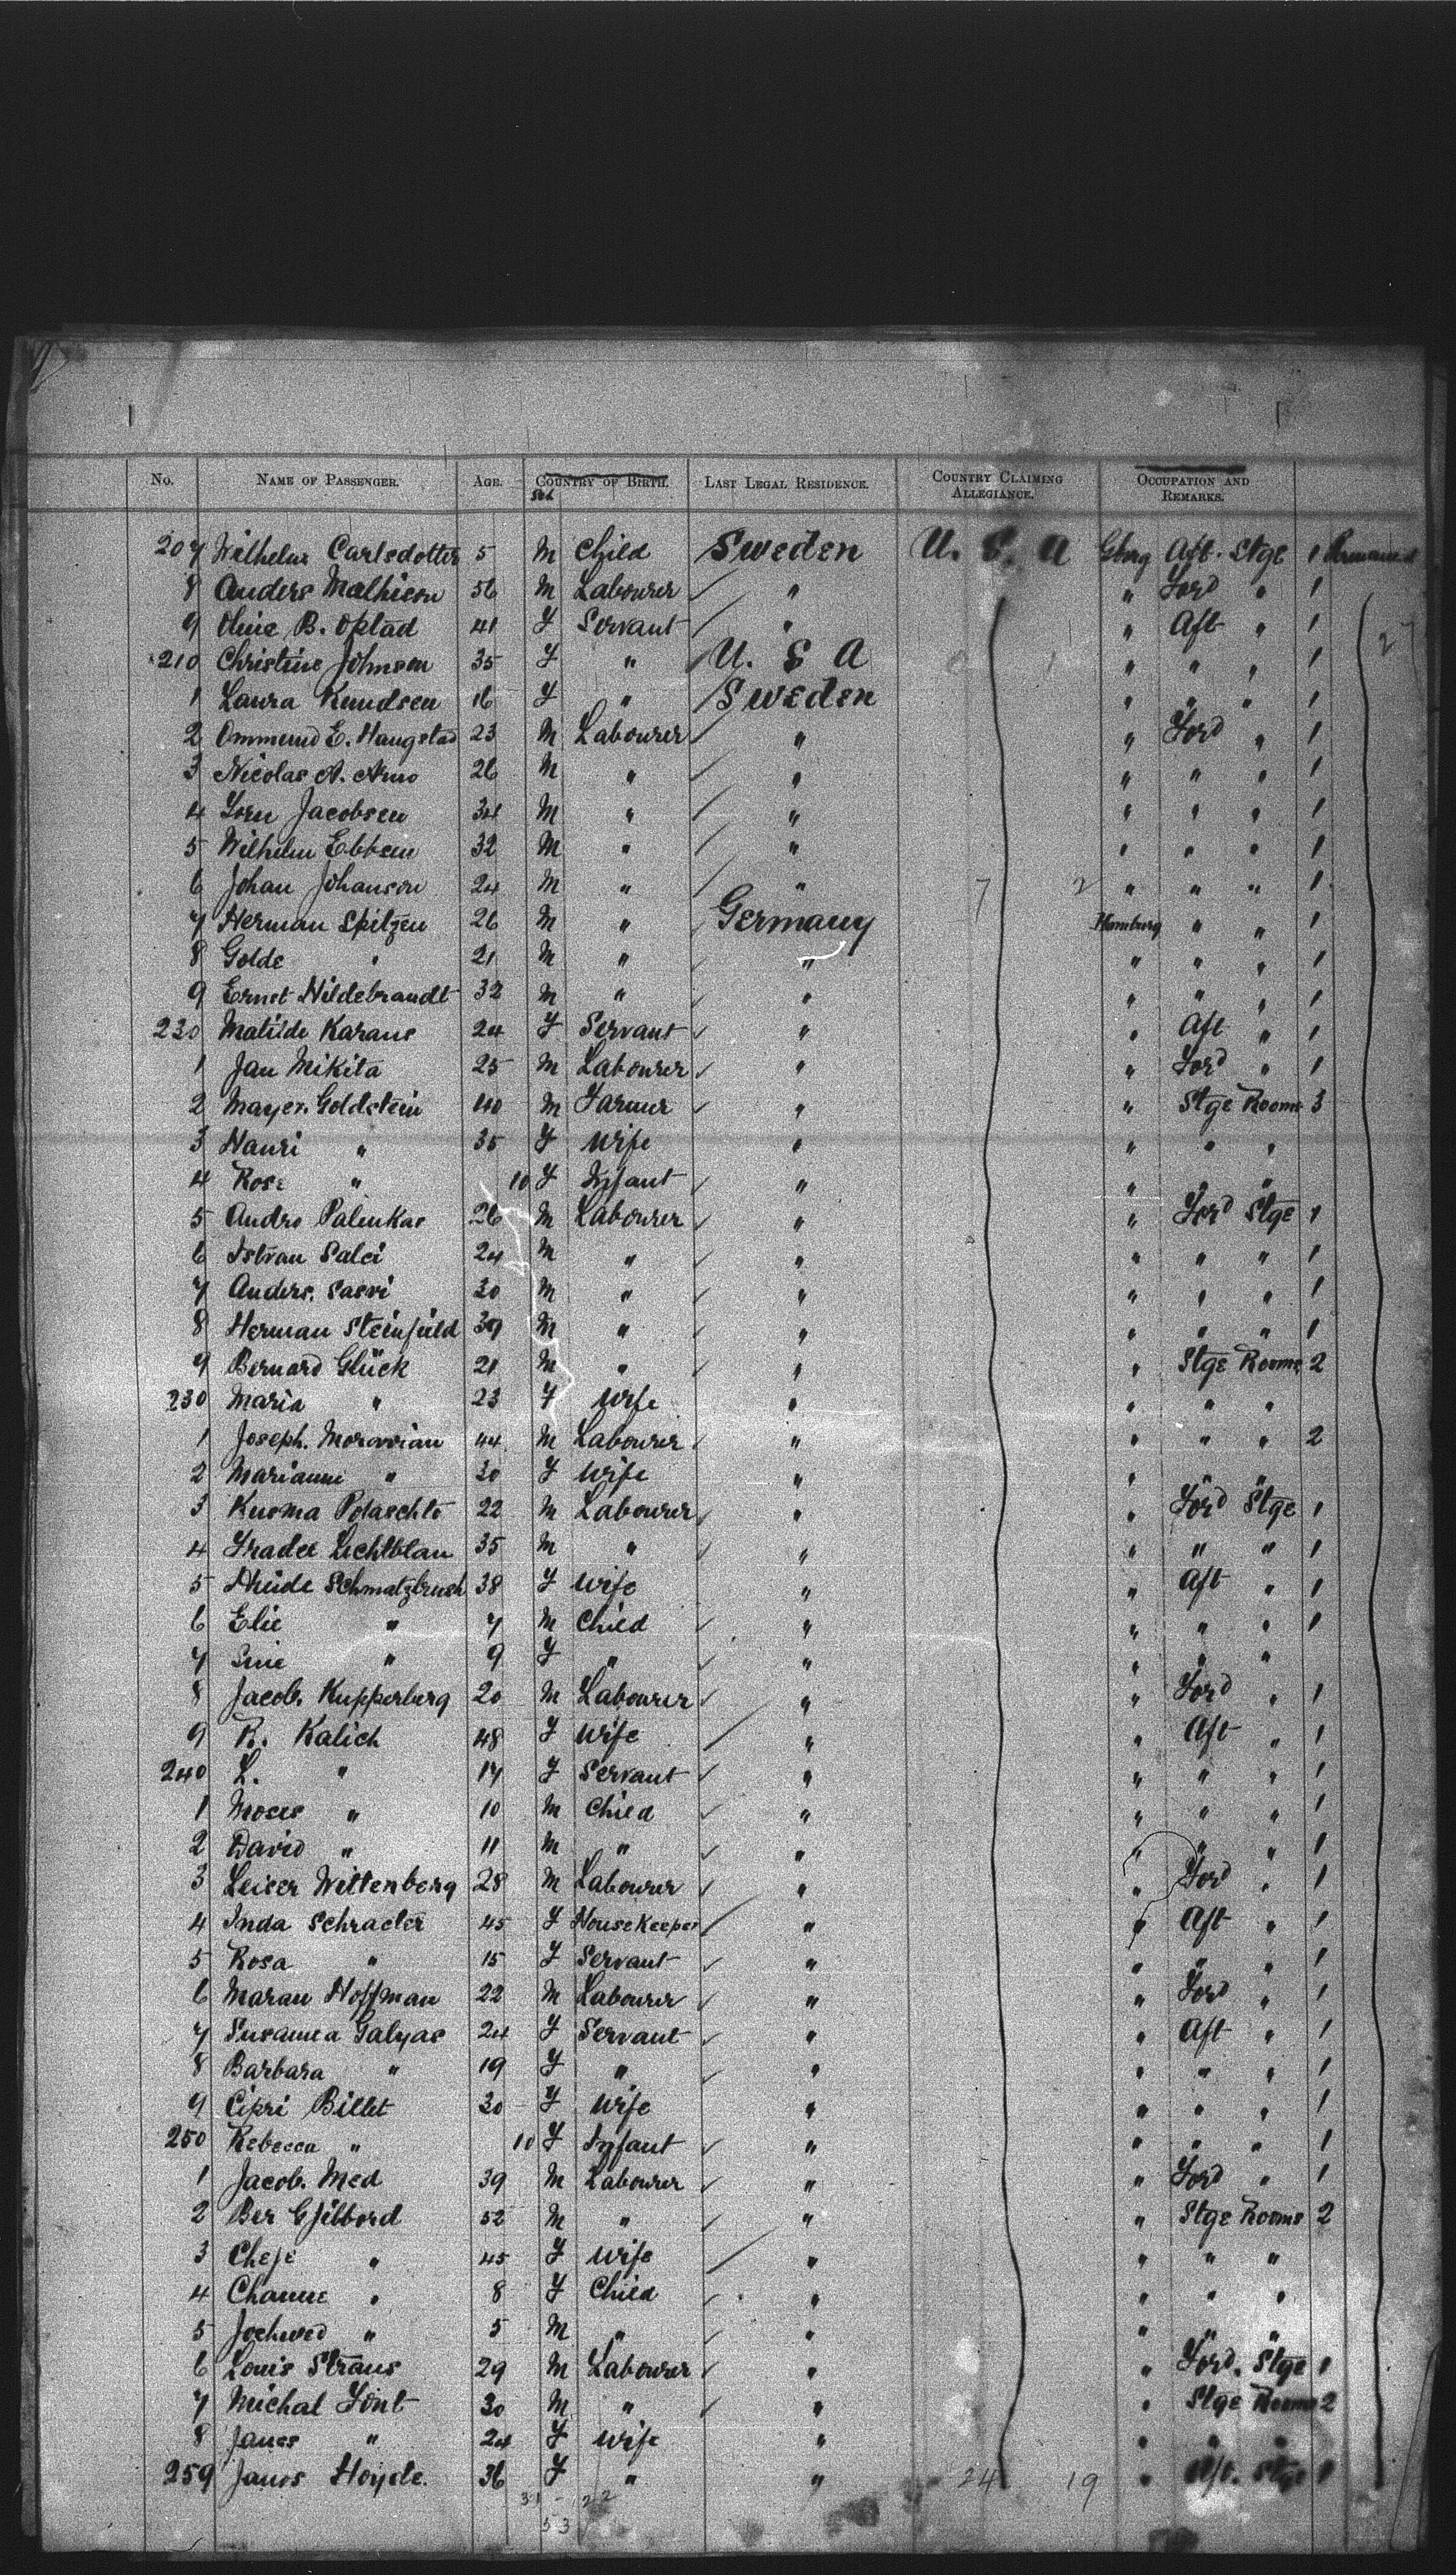 No. NAME OF PASSENGER. AGE. COUNTRY OF BIRTH. LAST LEGAL RESIDENCE. COUNTRY CLAIMING ALLEGIANCE. OCCUPATION AND REMARKS.
207 Wilhelm Carlsdotter 5 M Child Sweden U. S. A Gborg Aft. Stge 1
8 Anders Mathieson 56 M Labourer " " Ford " 1
9 Oline B. Oplad 41 F Servant " " Aft " 1
210 Christine Johnson 35 F " U. S A " " " 1
1 Laura Knudsen 16 F " Sweden " " " 1
2 Ommund E. Haugstad 23 M Labourer " " Ford " 1
3 Nicolas A. Arno 26 M " " " " " 1
4 Lorn Jacobsen 34 M " " " " " 1
5 Wilhelm Ebbsen 32 M " " " " " 1
6 Johan Johanson 24 M " " 7 2 " " " 1
7 Herman Spitzen 26 M " Germany Hamburg " " 1
8 Golde " 21 M " " " " " 1
9 Ernst Hildebrandt 32 M " " " " " 1
220 Matilde Karaus 24 F Servant " " Aft " 1
1 Jan Mikita 25 M Labourer " " Ford " 1
2 Mayer. Goldstein 40 M Farmer " " Stge Rooms 3
3 Hanri " 35 F Wife " " " "
4 Rose " 10 F Infant " " " "
5 Andro Palenkas 26 M Labourer " " Ford Stge 1
6 Istvan Salci 24 M " " " " " 1
7 Anders. Sasvi 30 M " " " " " 1
8 Herman Steinfield 39 M " " " " " 1
9 Bernard Glück 21 M " " " Stge Rooms 2
230 Maria " 23 F Wife " " " "
1 Joseph. Moravian 44 M Labourer " " " " 2
2 Marianne " 30 F Wife " " " "
3 Kusma Potaschto 22 M Labourer " " Ford Stge 1
4 Fradel Lichtblau 35 M " " " " " 1
5 Schmatzbrush 38 F Wife " " Aft " 1
6 Elie " 7 M Child " " " " 1
7 Sine " 9 F " " " " "
8 Jacob. Kupperberg 20 M Labourer " " Ford " 1
9 R. Kalich 48 F Wife " " Aft " 1
240 L. " 17 F Servant " " " " 1
1 Moses " 10 M Child " " " " 1
2 David " 11 M " " " " " 1
3 Leiser Wittenberg 28 M Labourer " " Ford " 1
4 Inda Schracter 45 F HouseKeeper " " Aft " 1
5 Rosa " 15 F Servant " " " " 1
6 Maran Hoffman 22 M Labourer " " Ford " 1
7 Susanna Galyas 24 F Servant " " Aft " 1
8 Barbara " 19 F " " " " " 1
9 Cipri Billet 30 F Wife " " " " 1
250 Rebecca " 10 F Infant " " " " 1
1 Jacob. Med 39 M Labourer " " Ford " 1
2 Ber 52 M " " " Stge Rooms 2
3 Cheje " 45 F Wife " " " "
4 Channe " 8 F Child " " " "
5 Jochwed " 5 M " " " " "
6 Louis Straus 29 M Labourer " " Ford. Stge 1
7 Michal Font 30 M " " " Stge Rooms 2
8 Janes " 24 F Wife " " " "
259 Janos Hoyde. 36 F " " 24 19 " Aft. Stge 1
31 - 22
53